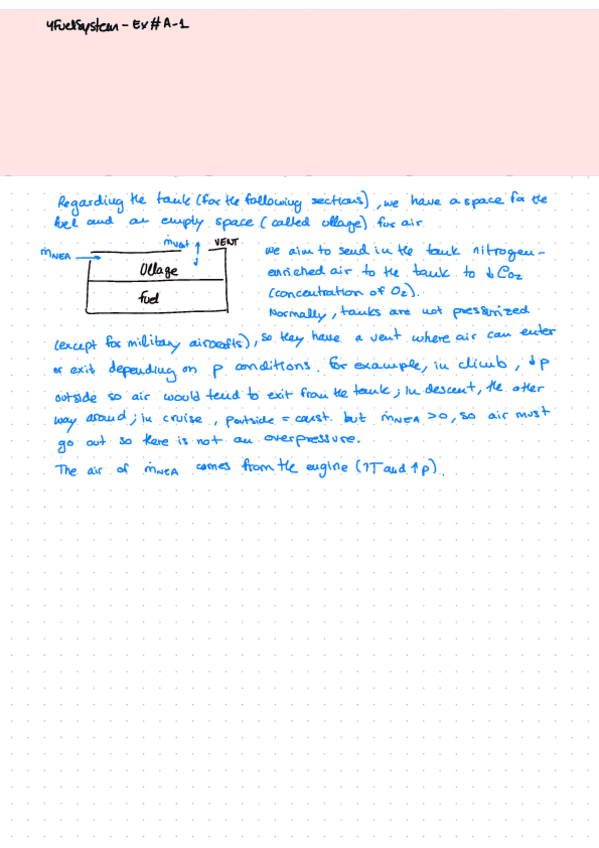 4FuelSystem - Ex#A-1
Regarding the tank (for the following sections), we have a space for the
fuel and an empty space (called ullage) for air
ṁNEA
ṁvent
VENT
Ullage
fuel
we aim to send in the tank nitrogen-
enriched air to the tank to ↓ CO2
(concentration of O2).
Normally, tanks are not pressurized
(except for military aircrafts), so they have a vent where air can enter
or exit depending on p conditions. For example, in climb, ↓p
outside so air would tend to exit from the tank; in descent, the other
way around; in cruise, poutside = const. but ṁNEA >0, so air must
go out so there is not an overpressure.
The air of ṁNEA comes from the engine (↑T and ↑p).